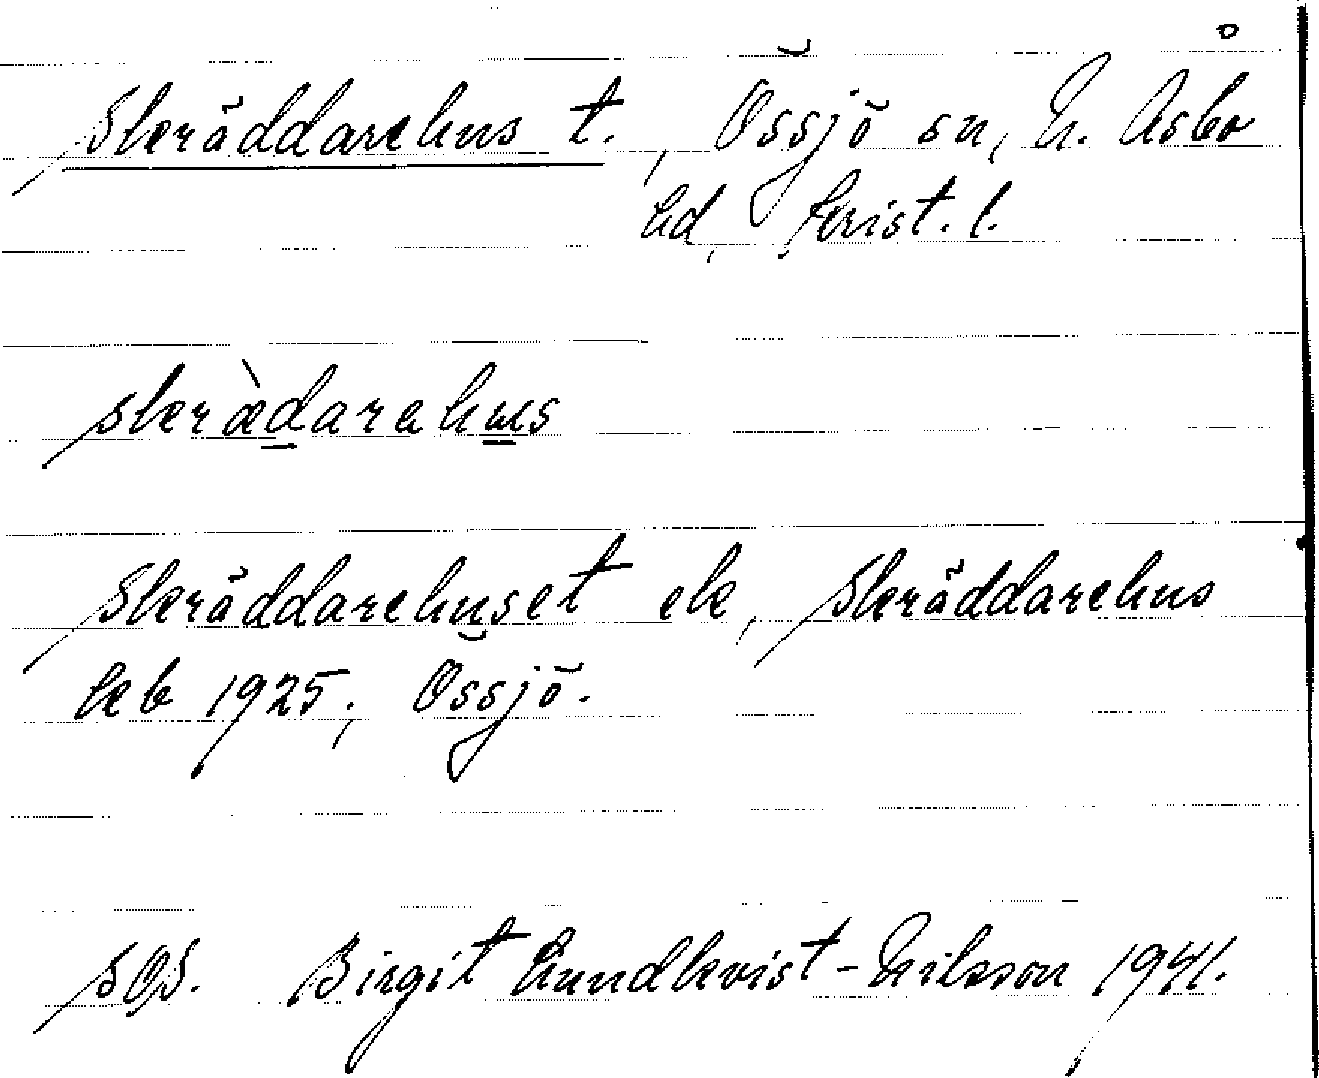 Skräddarehus t., Össjö sn, N. Åsbo
hd, Krist. l.
skræ̀darehus
Skräddarehuset el., Skräddarehus
1925; Össjö.
SOS. Birgit Lundkvist-Nilsson 1941.